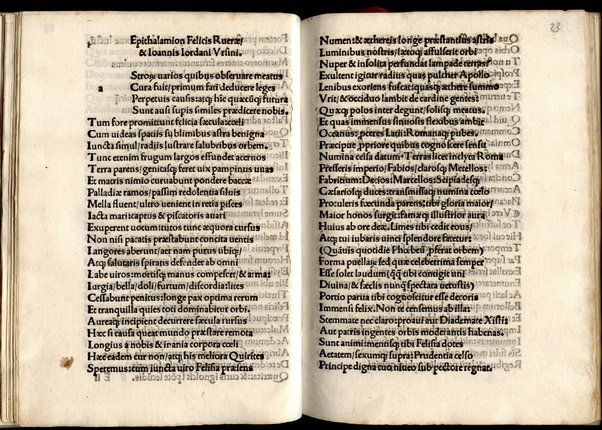 Epithalamion Felicis Rueræ/
& Ioannis Iordani Vrsini.
Stroꝝ uarios quibus obseruare meatus
a
Cura fuit/primum fati deducere leges
Perpetuis causis:atq; hic quæcūq; futura
Sunt ausi supis similes prædicere nobis.
Tum fore promittunt felicia sæcula:cœli
Cum uideas spatiis sublimibus astra benigna
Iuncta simul/radiis lustrare salubribus orbem.
Tunc etenim frugum largos effundet aceruos
Terra parens/genitasq; feret uix pampinus uuas
Et matris nimio curuabunt pondere baccæ
Palladiæ ramos/passim redolentia siluis
Mella fluent/ultro uenient in retia pisces
Iacta mari:captus & piscatoris auari
Exuperent uotum:tutos tunc æquora cursus
Non nisi pacatis præstabunt concita uentis
Langores aberunt/aer nam purus ubiq;
Atq; salutaris spirans defendet ab omni
Labe uiros:mortisq; manus compescet/& arma:
Iurgia/bella/doli/furtum/discordia:lites
Cessabunt penitus:longe pax optima rerum
Et tranquilla quies toti dominabitur orbi.
Aureaq; incipient decurrere sæcula rursus
Hæc si causa queat mundo præstare remota
Longius a nobis & irania corpora cœli
Hæc eadem cur non/atq; his meliora Quirites
Speremus:cum iuncta uiro Felisia præsens
e ii
23
Numen:& æthereis longe præstantius astris
Luminibus nostris/lætoq; affulserit orbi
Nuper & insolita perfundat lampade terras/
Exultent igitur radius quas pulcher Apollo
Lenibus exoriens fuscat:quasq; æthere summo
Vrit/& occiduo lambit de cardine gentes:
Quæq; polos inter degunt/solisq; meatus:
Et quas immensus sinuosis flexibus ambit
Oceanus:ceteras Latii:Romanaq; pubes.
Præcipue/ppriore quibus cognoscere sensit
Numina celsa datum. Terras licet inclyta Roma
Presseris imperio/Fabios/claros:Metellos:
Fabritium:Decios:Marcellos:Serias:desq;
Cæsariosq; duces:transmissaq; numina cœlo
Protuleris fœcunda parens:tibi gloria maior/
Maior honos surgit:famæq; illustrior aura
Huius ab ore deæ. Limes tibi cedit eous/
Atq; tui iubaris uincer splendore fatetur:
(Quāuis quotidie Phœbeū spectet ab orbe)
Forma puellaꝝ: sed quæ celeberrima semper
Esse solet laudum(q̄q̄ tibi contigit uni
Diuina/& sæclis nunq̄ spectata uetustis)
Portio parua tibi cognoscitur esse decoris
Immensi felix:Non te censemus ab illar
Stemmate nec claro:prouti aut Diademate Xisti:
Aut patris ingentes orbis moderantis habenas.
Sunt animi:mentisq; tibi Felisia dotes
Aetatem/sexumq; supra:Prudentia celso
Principe digna tuo niueo sub pectore regnat.